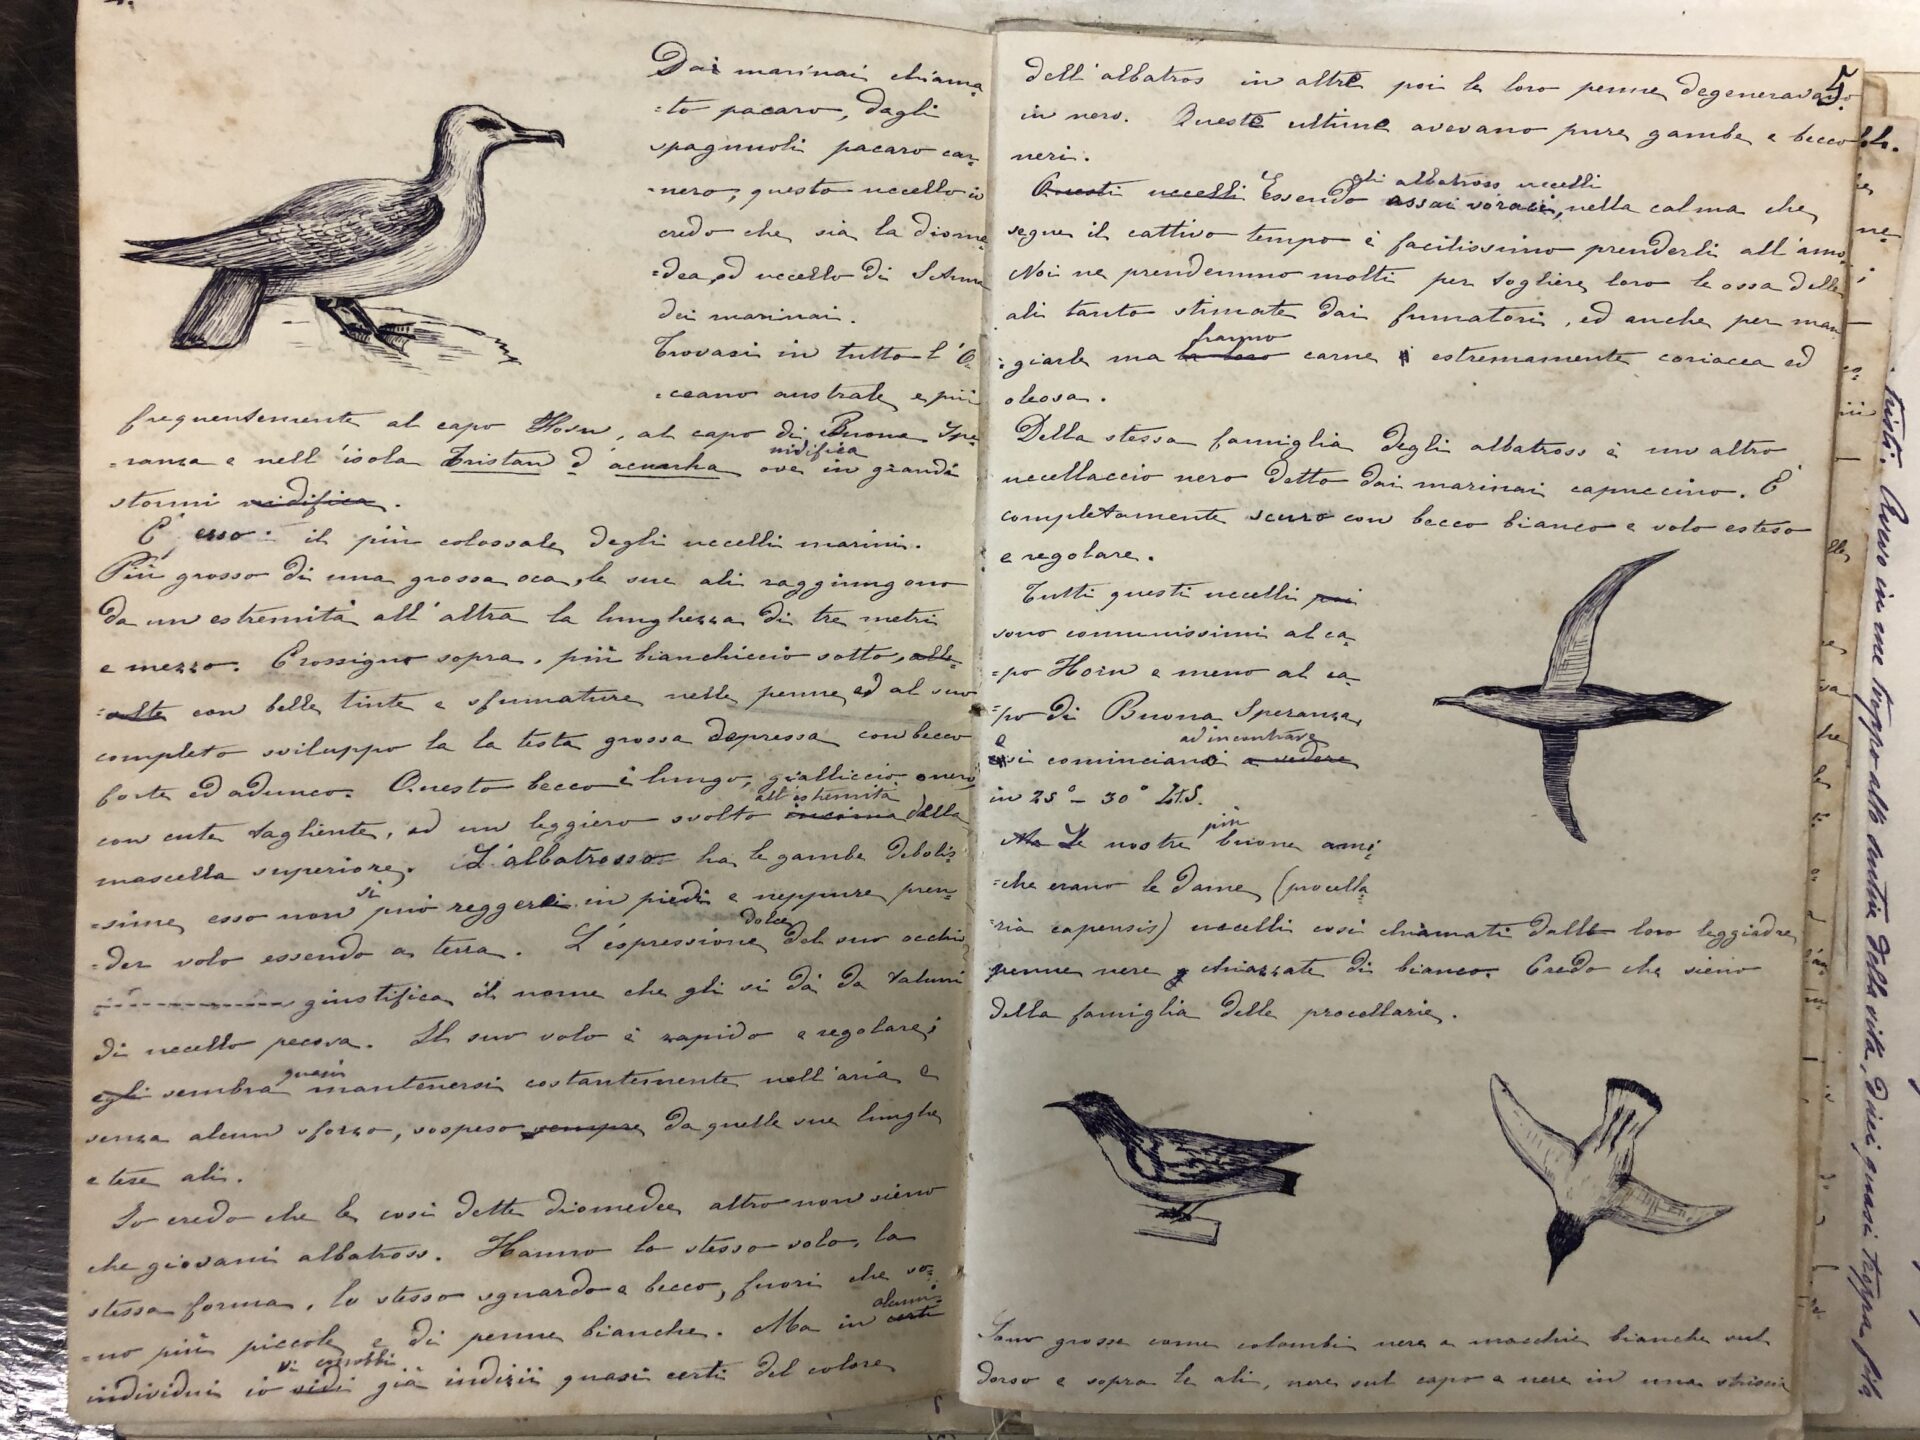 Dai marinai chiama=
=to pacaro, dagli
spagnuoli pacaro car=
=nero, questo uccello io
credo che sia la diome
=dea, ed uccello di S. Anna
dei marinai.
Trovasi in tutto l'O=
=ceano australe e più
frequentemente al capo Horn, al capo di Buona Spe=
=ranza e nell'isola Tristan d'acunha ove nidifica in grandi
stormi nidifica.
E' esso il più colossale degli uccelli marini.
Più grosso di una grossa oca, le sue ali raggiungono
da un estremità all'altra la lunghezza di tre metri
e mezzo. Grossigno sopra, più bianchiccio sotto,
con belle tinte e sfumature nelle penne, ed al suo
completo sviluppo la la testa grossa depressa con becco
forte ed adunco. Questo becco è lungo, gialliccio o nero,
con cute tagliente, ed un leggiero svolto all'estremità oncoma della
mascella superiore. L'albatrosso ha le gambe debolis=
=sime, esso non si può reggersi in piedi e neppure pren=
=der volo essendo a terra. L'espressione dolce del suo occhio
giustifica il nome che gli si dà da taluni
di uccello pecora. Il suo volo è rapido e regolare;
egli sembra quasi mantenersi costantemente nell'aria e
senza alcun sforzo, sospeso sempre da quelle sue lunghe
e tese ali.
Io credo che le cosi dette diomedee altro non sieno
che giovani albatross. Hanno lo stesso volo, la
stessa forma, lo stesso sguardo e becco, fuori che so=
=no più piccole e di penne bianche. Ma in alcuni certi
individui io vi conobbi vidi già indizii quasi certi del colore
5.
dell'albatros in altre poi le loro penne degeneravano
in nero. Queste ultime avevano pure gambe e becco
neri.
Questi uccelli Essendo gli albatross uccelli assai voraci, nella calma che
segue il cattivo tempo è facilissimo prenderli all'amo.
Noi ne prendemmo molti per togliere loro le ossa delle
ali tanto stimate dai fumatori, ed anche per man=
=giarle ma hanno la loro carne estremamente coriacea ed
oleosa.
Della stessa famiglia degli albatross è un altro
uccellaccio nero detto dai marinai capuccino. E'
completamente scuro con becco bianco e volo esteso
e regolare.
Tutti questi uccelli poi
sono comunissimi al ca=
=po Horn e meno al ca=
=po di Buona Speranza,
e si cominciano ad incontrare a vedere
in 25° - 30° Lt.S.
Ma Le nostre più buone ami=
=che erano le dame (procella=
=ria capensis) uccelli cosi chiamati dalle loro leggiadre
penne nere chiazzate di bianco. Credo che sieno
della famiglia delle procellarie.
Sono grosse come colombi nere a macchie bianche sul
dorso e sopra le ali, nere sul capo e nere in una striscia